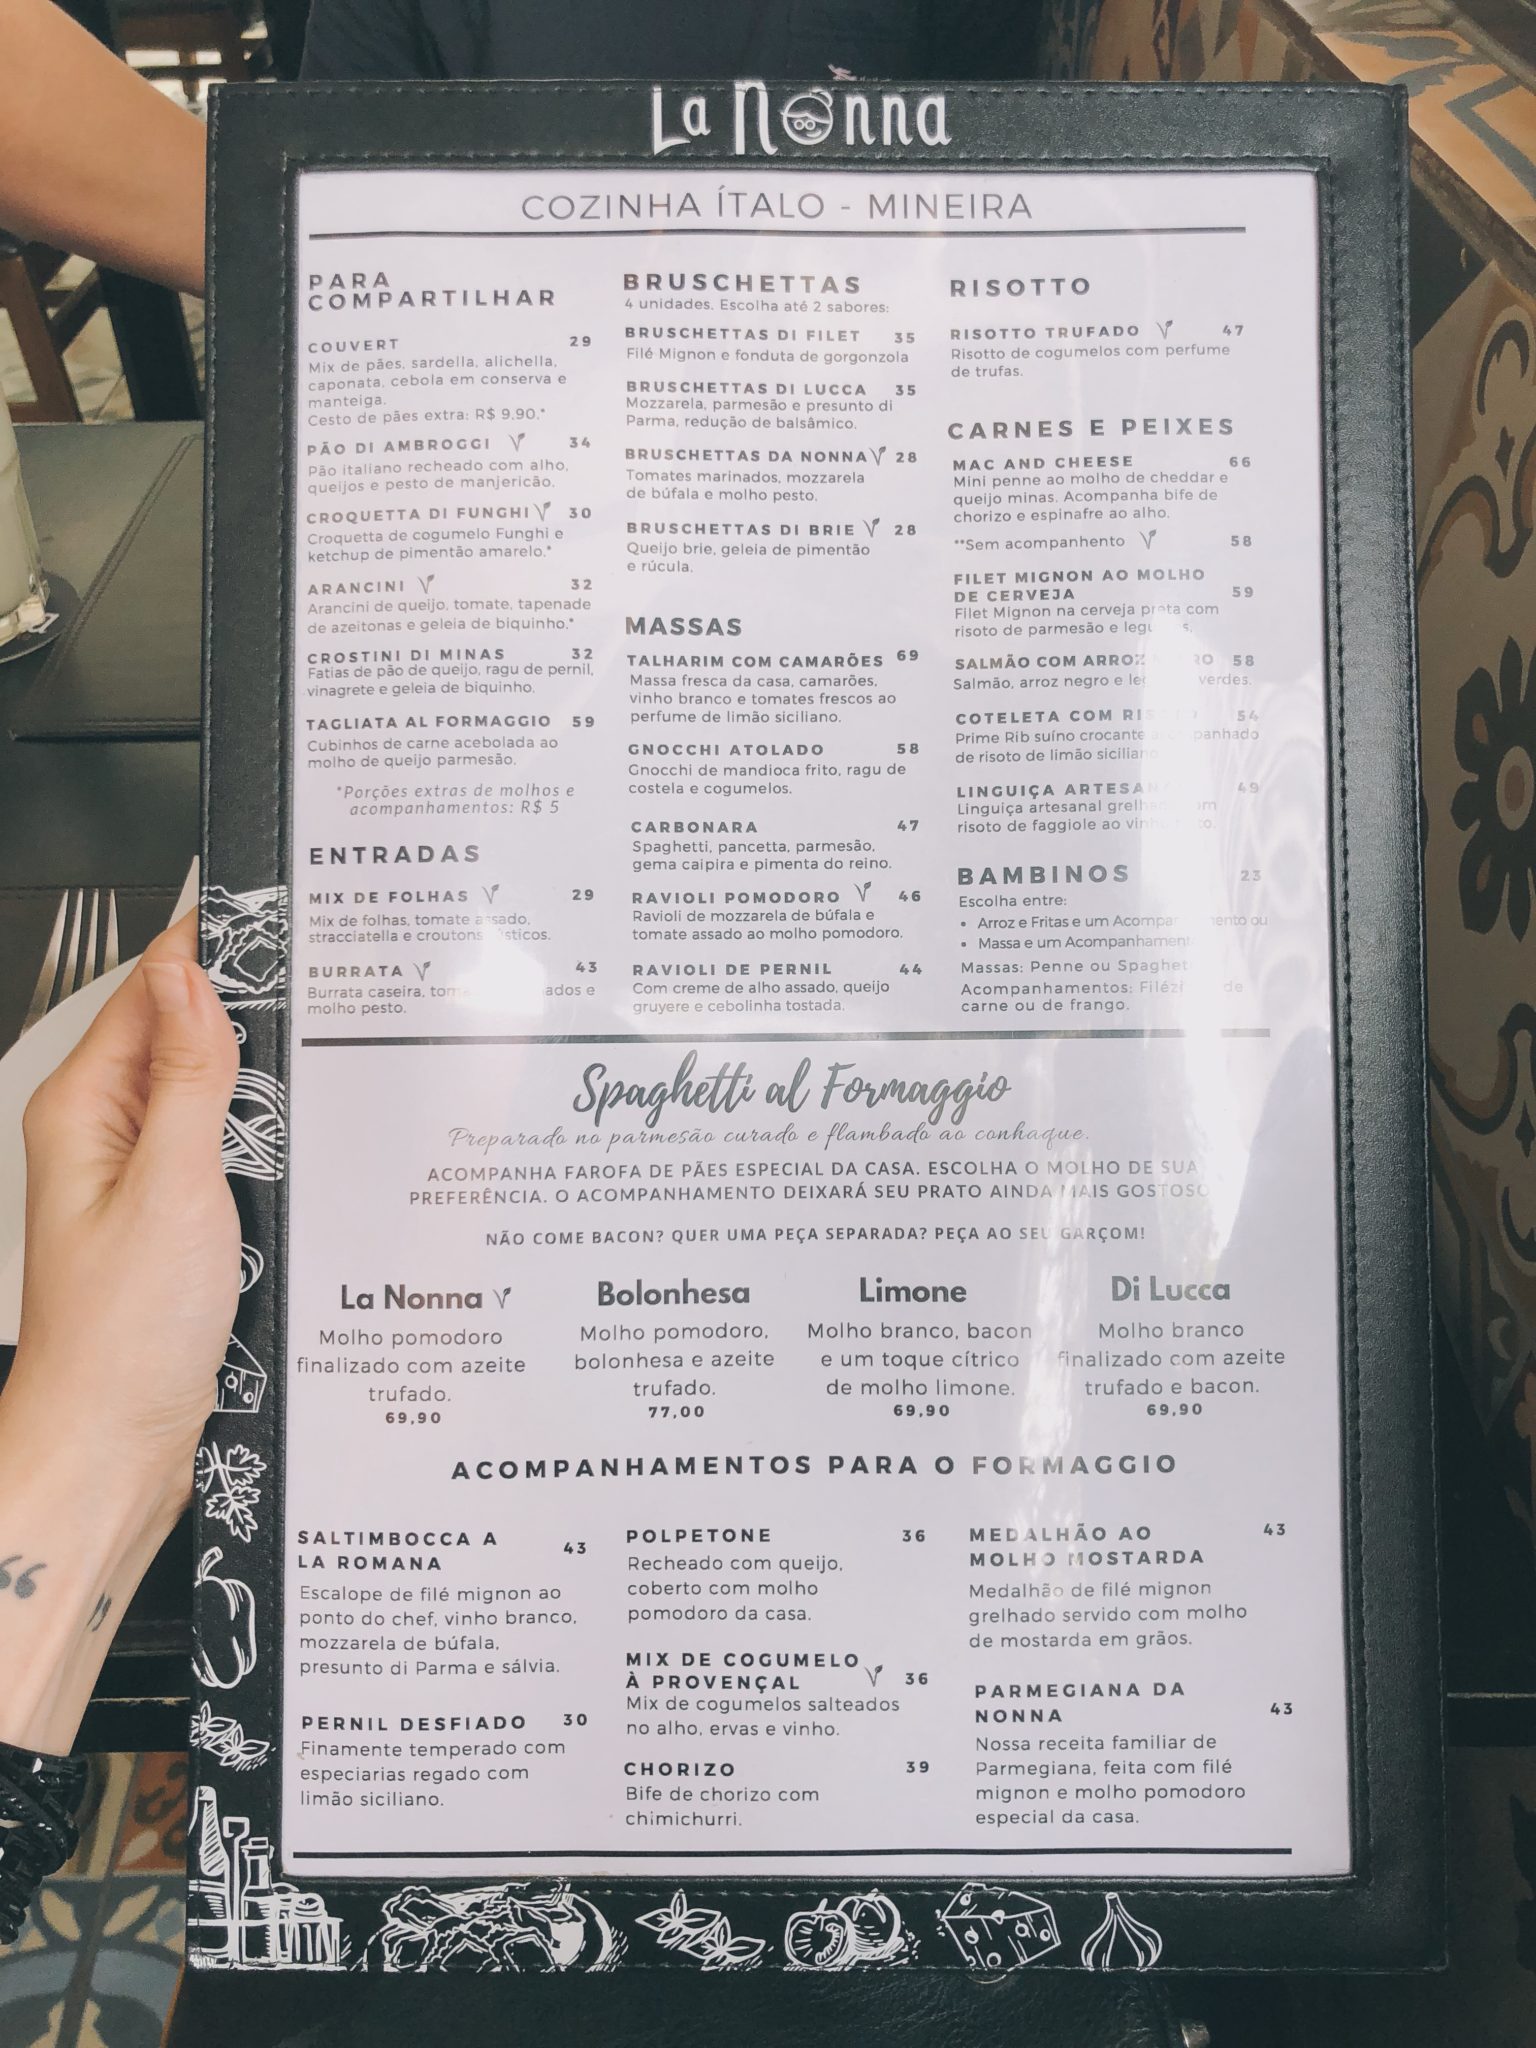 La Nonna
COZINHA ÍTALO - MINEIRA
PARA
COMPARTILHAR
COUVERT 29
Mix de pães, sardella, alichella,
caponata, cebola em conserva e
manteiga.
Cesto de pães extra: R$ 9,90.*
PÃO DI AMBROGGI 34
Pão italiano recheado com alho,
queijos e pesto de manjericão.
CROQUETTA DI FUNGHI 30
Croquetta de cogumelo Funghi e
ketchup de pimentão amarelo.*
ARANCINI 32
Arancini de queijo, tomate, tapenade
de azeitonas e geleia de biquinho.*
CROSTINI DI MINAS 32
Fatias de pão de queijo, ragu de pernil,
vinagrete e geleia de biquinho.
TAGLIATA AL FORMAGGIO 59
Cubinhos de carne acebolada ao
molho de queijo parmesão.
*Porções extras de molhos e
acompanhamentos: R$ 5
ENTRADAS
MIX DE FOLHAS 29
Mix de folhas, tomate assado,
stracciatella e croutons
BURRATA 43
Burrata caseira, e
molho pesto.
BRUSCHETTAS
4 unidades. Escolha até 2 sabores:
BRUSCHETTAS DI FILET 35
Filé Mignon e fonduta de gorgonzola
BRUSCHETTAS DI LUCCA 35
Mozzarela, parmesão e presunto di
Parma, redução de balsâmico.
BRUSCHETTAS DA NONNA 28
Tomates marinados, mozzarela
de búfala e molho pesto.
BRUSCHETTAS DI BRIE 28
Queijo brie, geleia de pimentão
e rúcula.
MASSAS
TALHARIM COM CAMARÕES 69
Massa fresca da casa, camarões,
vinho branco e tomates frescos ao
perfume de limão siciliano.
GNOCCHI ATOLADO 58
Gnocchi de mandioca frito, ragu de
costela e cogumelos.
CARBONARA 47
Spaghetti, pancetta, parmesão,
gema caipira e pimenta do reino.
RAVIOLI POMODORO 46
Ravioli de mozzarela de búfala e
tomate assado ao molho pomodoro.
RAVIOLI DE PERNIL 44
Com creme de alho assado, queijo
gruyere e cebolinha tostada.
RISOTTO
RISOTTO TRUFADO 47
Risotto de cogumelos com perfume
de trufas.
CARNES E PEIXES
MAC AND CHEESE 66
Mini penne ao molho de cheddar e
queijo minas. Acompanha bife de
chorizo e espinafre ao alho.
**Sem acompanhento 58
FILET MIGNON AO MOLHO
DE CERVEJA 59
Filet Mignon na cerveja preta com
risoto de parmesão e
SALMÃO COM ARROZ 58
Salmão, arroz negro e verdes.
COTELETA COM 54
Prime Rib suíno crocante acompanhado
de risoto de limão siciliano
LINGUIÇA 49
Linguiça artesanal
risoto de faggiole ao
BAMBINOS 23
Escolha entre:
• Arroz e Fritas e um Acompanhamento ou
• Massa e um Acompanhamento
Massas: Penne ou
Acompanhamentos: de
carne ou de frango.
Spaghetti al Formaggio
Preparado no parmesão curado e flambado ao conhaque.
ACOMPANHA FAROFA DE PÃES ESPECIAL DA CASA. ESCOLHA O MOLHO DE SUA
PREFERÊNCIA. O ACOMPANHAMENTO DEIXARÁ SEU PRATO AINDA MAIS GOSTOSO
NÃO COME BACON? QUER UMA PEÇA SEPARADA? PEÇA AO SEU GARÇOM!
La Nonna
Molho pomodoro
finalizado com azeite
trufado.
69,90
Bolonhesa
Molho pomodoro,
bolonhesa e azeite
trufado.
77,00
Limone
Molho branco, bacon
e um toque cítrico
de molho limone.
69,90
Di Lucca
Molho branco
finalizado com azeite
trufado e bacon.
69,90
ACOMPANHAMENTOS PARA O FORMAGGIO
SALTIMBOCCA A
LA ROMANA 43
Escalope de filé mignon ao
ponto do chef, vinho branco,
mozzarela de búfala,
presunto di Parma e sálvia.
PERNIL DESFIADO 30
Finamente temperado com
especiarias regado com
limão siciliano.
POLPETONE 36
Recheado com queijo,
coberto com molho
pomodoro da casa.
MIX DE COGUMELO
À PROVENÇAL 36
Mix de cogumelos salteados
no alho, ervas e vinho.
CHORIZO 39
Bife de chorizo com
chimichurri.
MEDALHÃO AO 43
MOLHO MOSTARDA
Medalhão de filé mignon
grelhado servido com molho
de mostarda em grãos.
PARMEGIANA DA
NONNA 43
Nossa receita familiar de
Parmegiana, feita com filé
mignon e molho pomodoro
especial da casa.